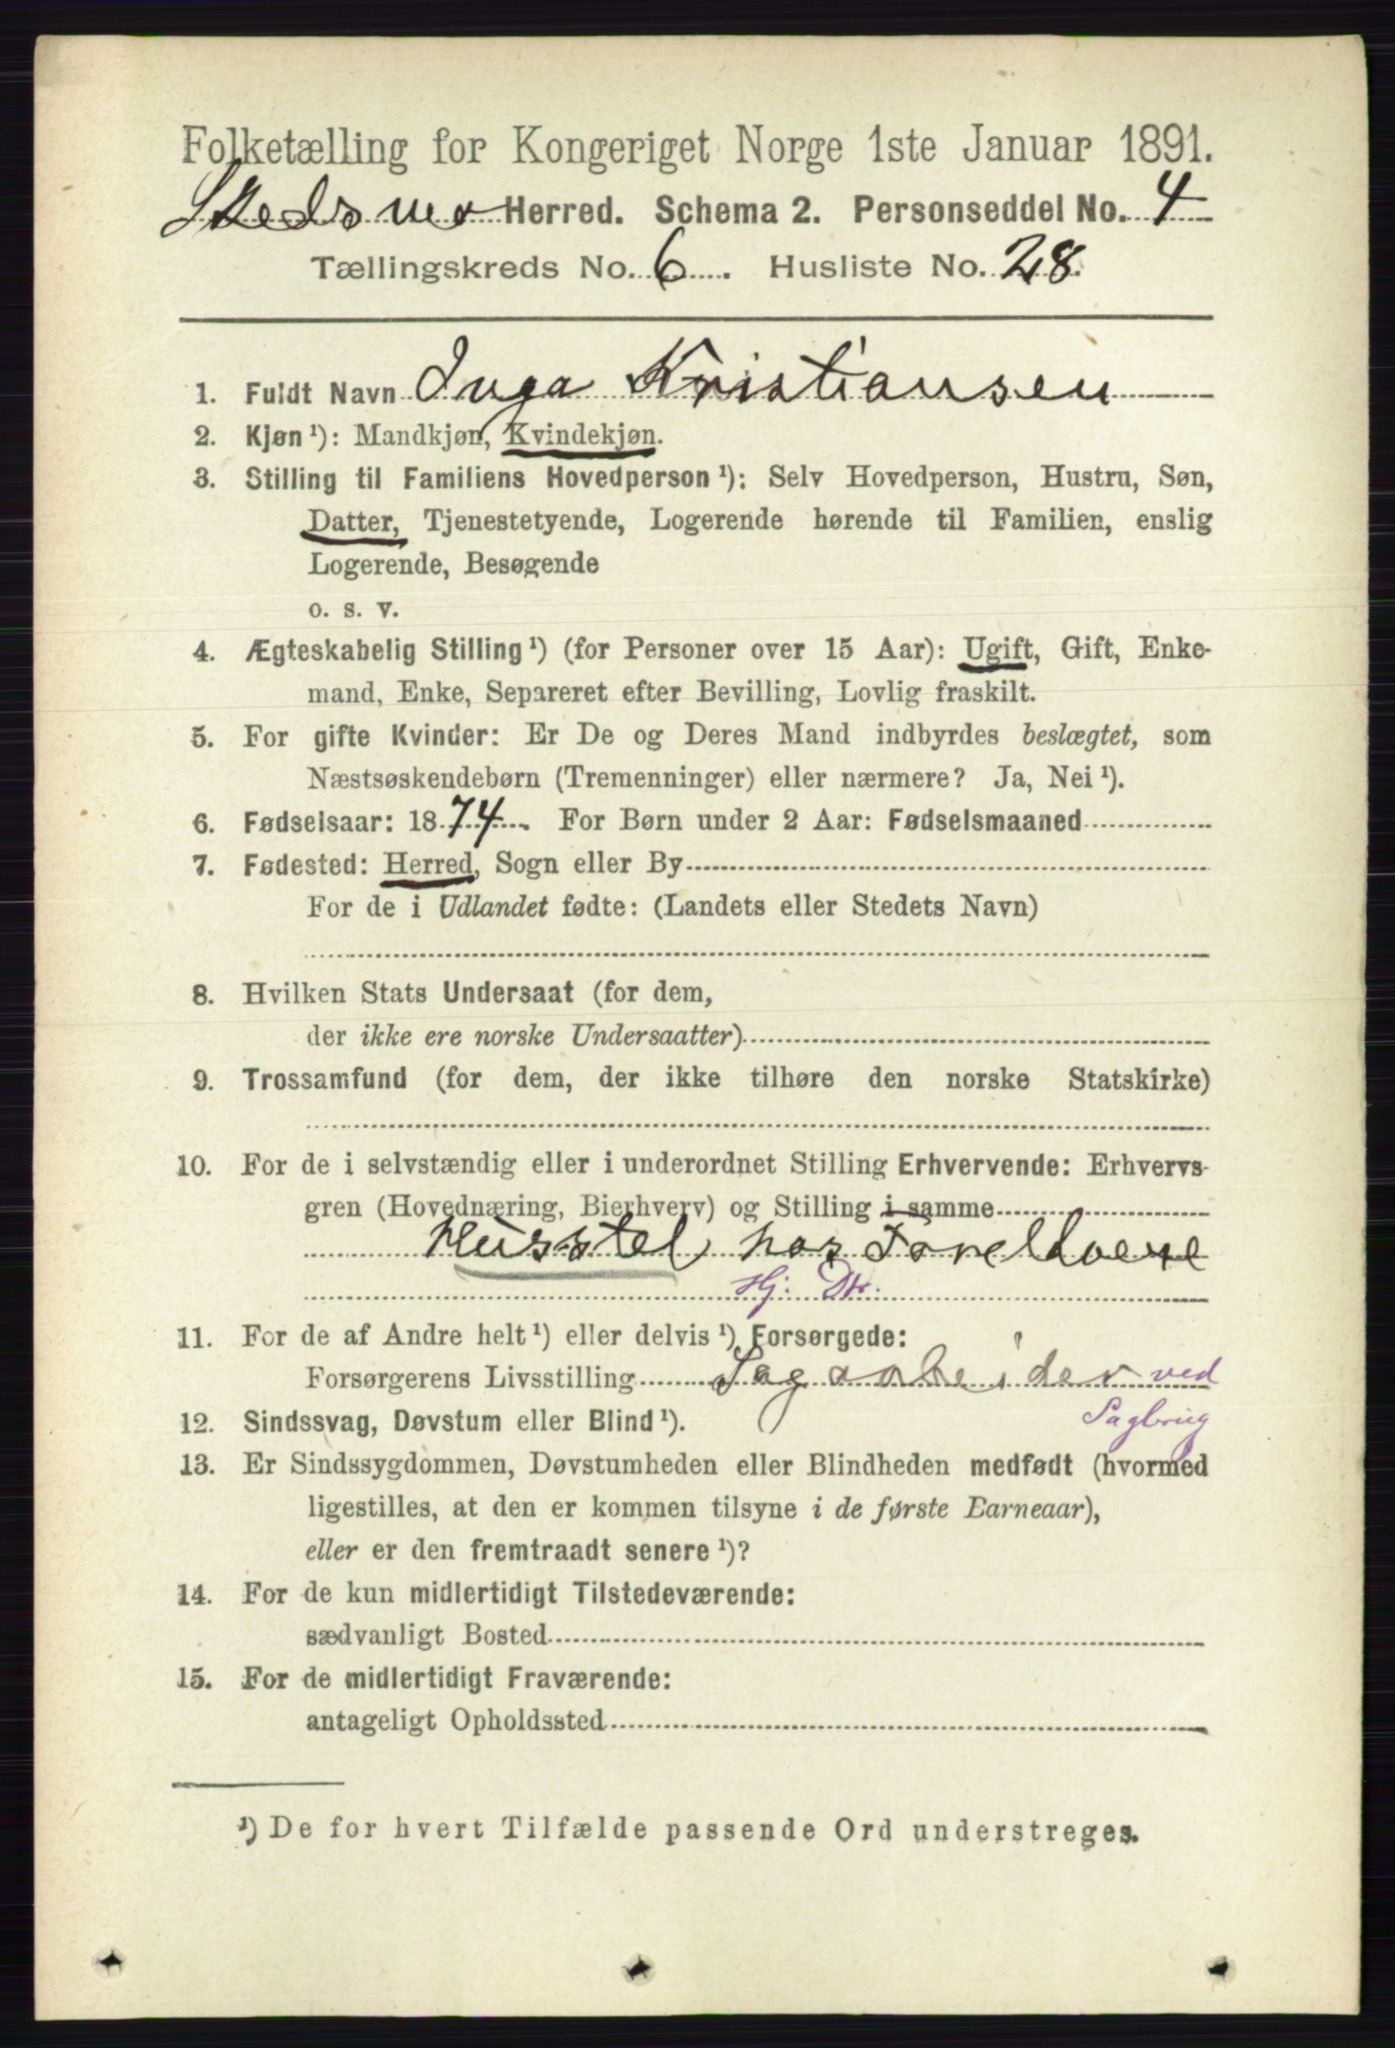 Folketælling for Kongeriget Norge 1ste Januar 1891.
Skedsmo Herred. Schema 2. Personseddel No. 4
Tællingskreds No. 6. Husliste No. 28.
1. Fuldt Navn Inga Kristiansen
2. Kjøn ¹): Mandkjøn, Kvindekjøn.
3. Stilling til Familiens Hovedperson ¹): Selv Hovedperson, Hustru, Søn,
Datter, Tjenestetyende, Logerende hørende til Familien, enslig
Logerende, Besøgende
o. s. v.
4. Ægteskabelig Stilling ¹) (for Personer over 15 Aar): Ugift, Gift, Enke-
mand, Enke, Separeret efter Bevilling, Lovlig fraskilt.
5. For gifte Kvinder: Er De og Deres Mand indbyrdes beslægtet, som
Næstsøskendebørn (Tremenninger) eller nærmere? Ja, Nei ¹).
6. Fødselsaar: 1874. For Børn under 2 Aar: Fødselsmaaned
7. Fødested: Herred, Sogn eller By
For de i Udlandet fødte: (Landets eller Stedets Navn)
8. Hvilken Stats Undersaat (for dem,
der ikke ere norske Undersaatter)
9. Trossamfund (for dem, der ikke tilhøre den norske Statskirke)
10. For de i selvstændig eller i underordnet Stilling Erhvervende: Erhvervs-
gren (Hovednæring, Bierhverv) og Stilling i samme
Husstel hos Foreldrene
Hj. Dtr.
11. For de af Andre helt ¹) eller delvis ¹) Forsørgede:
Forsørgerens Livsstilling Sagarbeider ved
Sagbrug
12. Sindssvag, Døvstum eller Blind ¹).
13. Er Sindssygdommen, Døvstumheden eller Blindheden medfødt (hvormed
ligestilles, at den er kommen tilsyne i de første Barneaar),
eller er den fremtraadt senere ¹)?
14. For de kun midlertidigt Tilstedeværende:
sædvanligt Bosted
15. For de midlertidigt Fraværende:
antageligt Opholdssted
¹) De for hvert Tilfælde passende Ord understreges.